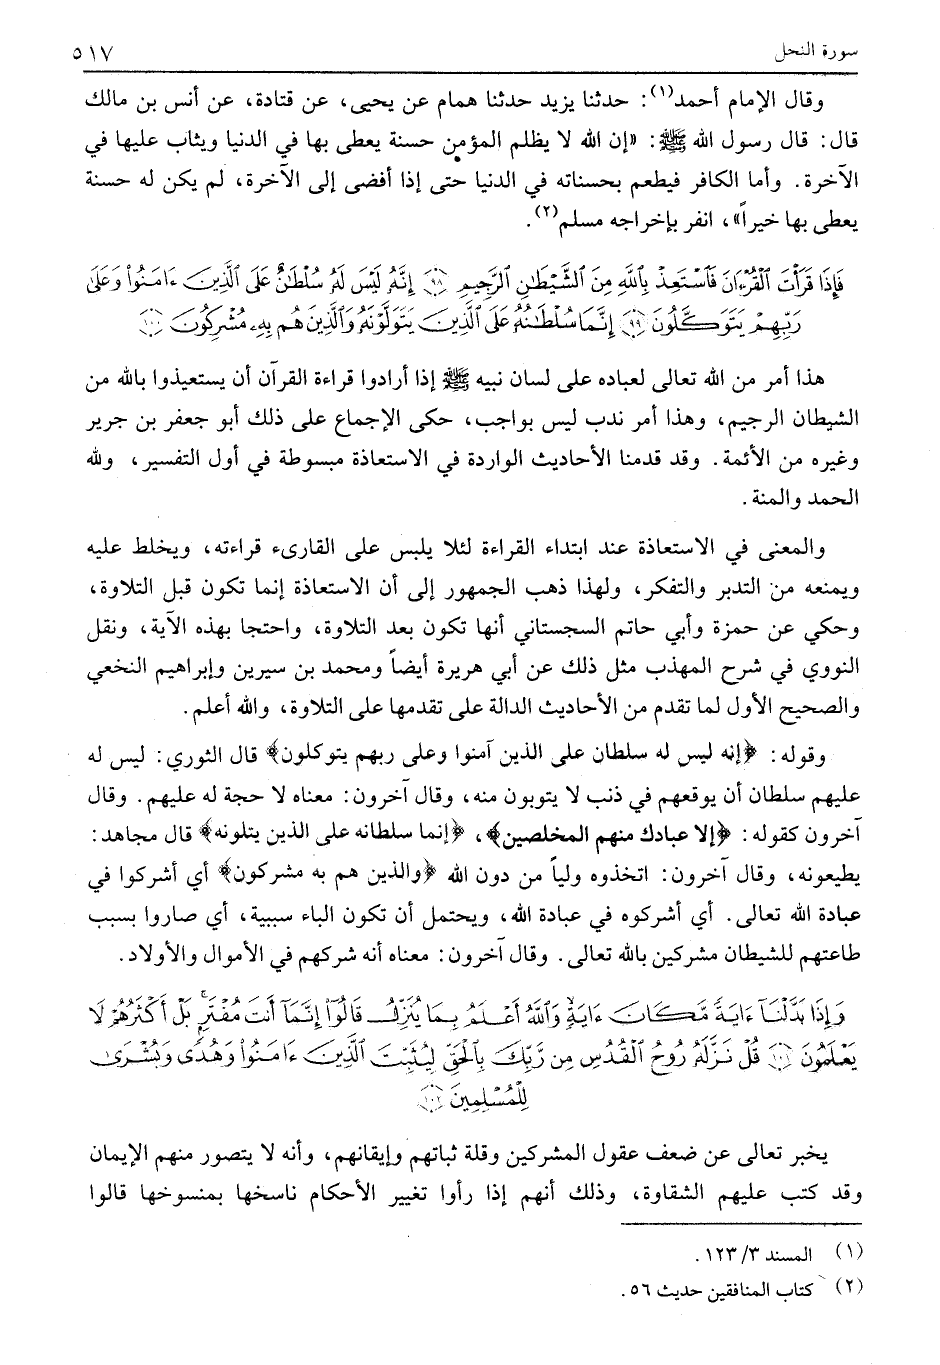 سورة النحل ٥١٧
وقال الإمام أحمد(١): حدثنا يزيد حدثنا همام عن يحيى، عن قتادة، عن أنس بن مالك
قال: قال رسول الله ﷺ: «إن الله لا يظلم المؤمن حسنة يعطى بها في الدنيا ويثاب عليها في
الآخرة. وأما الكافر فيطعم بحسناته في الدنيا حتى إذا أفضى إلى الآخرة، لم يكن له حسنة
يعطى بها خيراً»، انفر بإخراجه مسلم(٢).
فَإِذَا قَرَأْتَ ٱلْقُرْءَانَ فَٱسْتَعِذْ بِٱللَّهِ مِنَ ٱلشَّيْطَٰنِ ٱلرَّجِيمِ ﴿٩٨﴾ إِنَّهُۥ لَيْسَ لَهُۥ سُلْطَٰنٌ عَلَى ٱلَّذِينَ ءَامَنُوا۟ وَعَلَىٰ
رَبِّهِمْ يَتَوَكَّلُونَ ﴿٩٩﴾ إِنَّمَا سُلْطَٰنُهُۥ عَلَى ٱلَّذِينَ يَتَوَلَّوْنَهُۥ وَٱلَّذِينَ هُم بِهِۦ مُشْرِكُونَ ﴿١٠٠﴾
هذا أمر من الله تعالى لعباده على لسان نبيه ﷺ إذا أرادوا قراءة القرآن أن يستعيذوا بالله من
الشيطان الرجيم، وهذا أمر ندب ليس بواجب، حكى الإجماع على ذلك أبو جعفر بن جرير
وغيره من الأئمة. وقد قدمنا الأحاديث الواردة في الاستعاذة مبسوطة في أول التفسير، ولله
الحمد والمنة.
والمعنى في الاستعاذة عند ابتداء القراءة لئلا يلبس على القارىء قراءته، ويخلط عليه
ويمنعه من التدبر والتفكر، ولهذا ذهب الجمهور إلى أن الاستعاذة إنما تكون قبل التلاوة،
وحكي عن حمزة وأبي حاتم السجستاني أنها تكون بعد التلاوة، واحتجا بهذه الآية، ونقل
النووي في شرح المهذب مثل ذلك عن أبي هريرة أيضاً ومحمد بن سيرين وإبراهيم النخعي
والصحيح الأول لما تقدم من الأحاديث الدالة على تقدمها على التلاوة، والله أعلم.
وقوله: ﴿إنه ليس له سلطان على الذين آمنوا وعلى ربهم يتوكلون﴾ قال الثوري: ليس له
عليهم سلطان أن يوقعهم في ذنب لا يتوبون منه، وقال آخرون: معناه لا حجة له عليهم. وقال
آخرون كقوله: ﴿إلا عبادك منهم المخلصين﴾، ﴿إنما سلطانه على الذين يتلونه﴾ قال مجاهد:
يطيعونه، وقال آخرون: اتخذوه ولياً من دون الله ﴿والذين هم به مشركون﴾ أي أشركوا في
عبادة الله تعالى. أي أشركوه في عبادة الله، ويحتمل أن تكون الباء سببية، أي صاروا بسبب
طاعتهم للشيطان مشركين بالله تعالى. وقال آخرون: معناه أنه شركهم في الأموال والأولاد.
وَإِذَا بَدَّلْنَآ ءَايَةً مَّكَانَ ءَايَةٍ ۙ وَٱللَّهُ أَعْلَمُ بِمَا يُنَزِّلُ قَالُوٓا۟ إِنَّمَآ أَنتَ مُفْتَرٍۭ ۚ بَلْ أَكْثَرُهُمْ لَا
يَعْلَمُونَ ﴿١٠١﴾ قُلْ نَزَّلَهُۥ رُوحُ ٱلْقُدُسِ مِن رَّبِّكَ بِٱلْحَقِّ لِيُثَبِّتَ ٱلَّذِينَ ءَامَنُوا۟ وَهُدًى وَبُشْرَىٰ
لِلْمُسْلِمِينَ ﴿١٠٢﴾
يخبر تعالى عن ضعف عقول المشركين وقلة ثباتهم وإيقانهم، وأنه لا يتصور منهم الإيمان
وقد كتب عليهم الشقاوة، وذلك أنهم إذا رأوا تغيير الأحكام ناسخها بمنسوخها قالوا
(١) المسند ٣/ ١٢٣.
(٢) كتاب المنافقين حديث ٥٦.